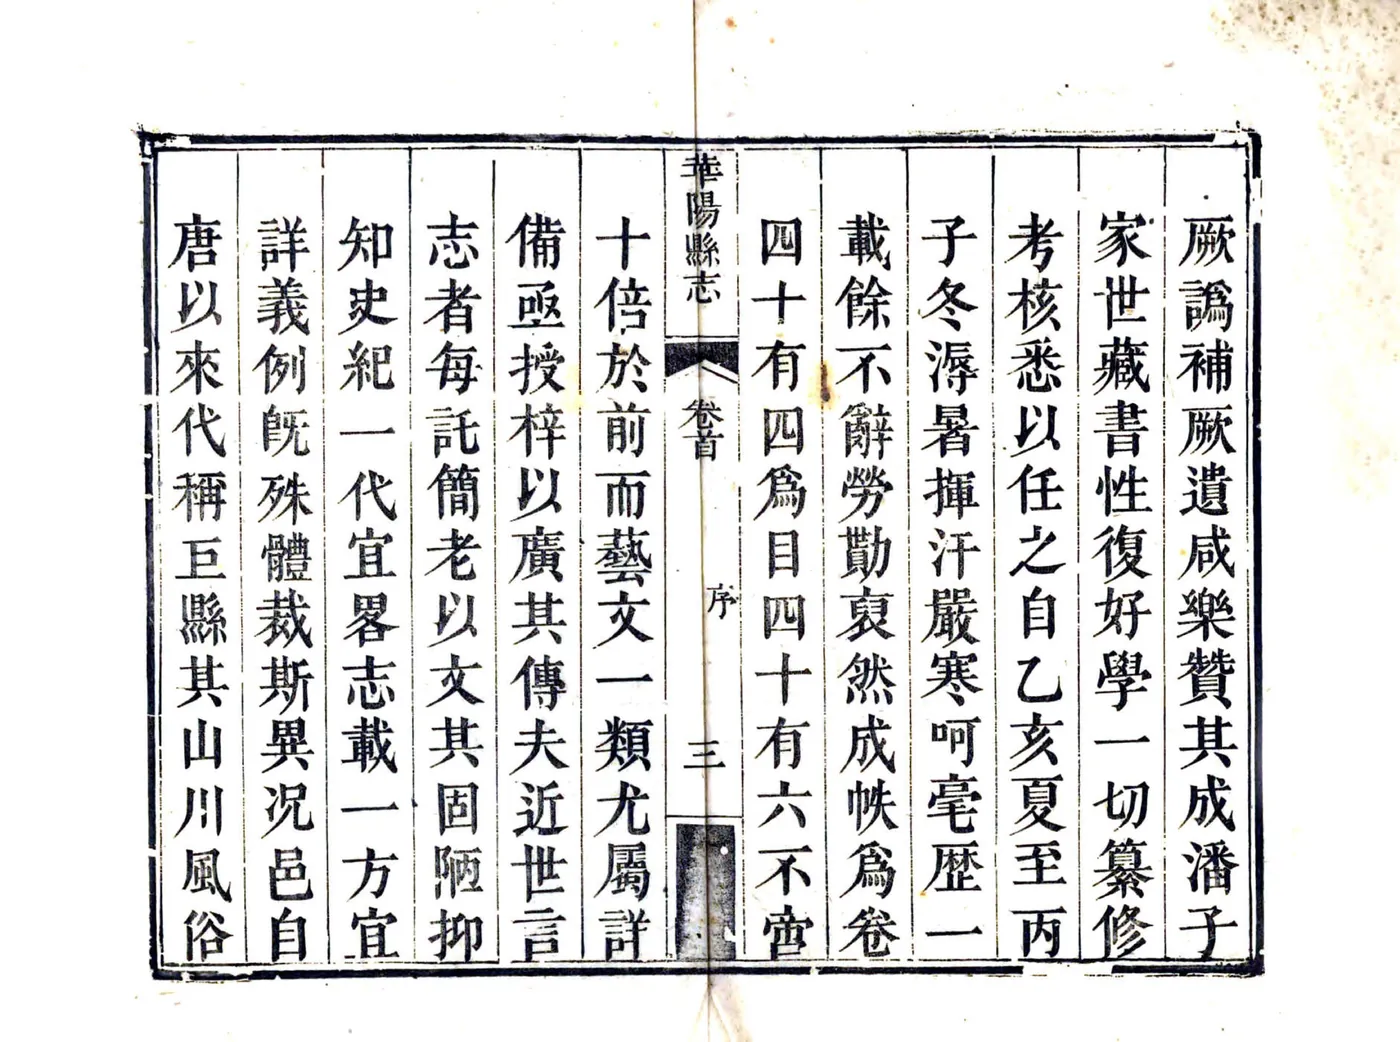 厥譌補厥遺咸樂贊其成潘子
家世藏書性復好學一切纂修
考核悉以任之自乙亥夏至丙
子冬溽暑揮汗嚴寒呵毫歴一
載餘不辭勞勩裒然成帙爲卷
四十有四爲目四十有六不啻
華陽縣志
卷首
序
三
十倍於前而藝文一類尤屬詳
備亟授梓以廣其傳夫近世言
志者每託簡老以文其固陋抑
知史紀一代宜畧志載一方宜
詳義例旣殊體裁斯異况邑自
唐以來代稱巨縣其山川風俗